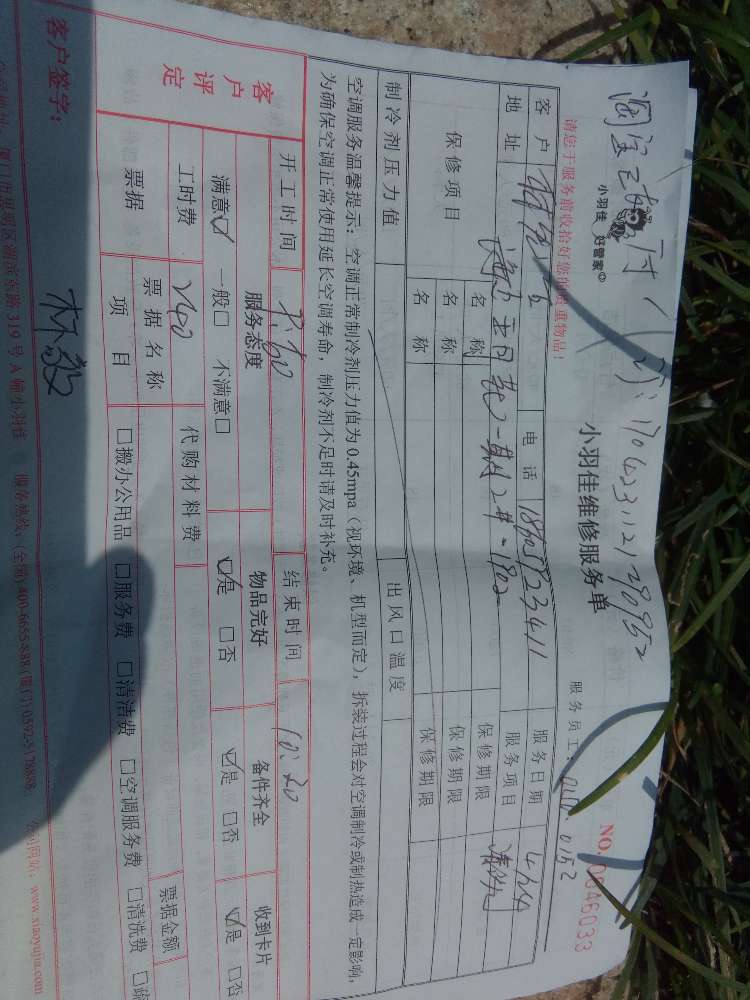 淘宝已预付
170423112190952
小羽佳 好管家
小羽佳维修服务单
请您于服务前收拾好您的贵重物品!
服务员工:0110.0152
NO:0046033
客户 电话 服务日期
地址 一期12#-1902 服务项目
保修项目 名称 保修期限
名称 保修期限
名称 保修期限
制冷剂压力值 出风口温度
空调服务温馨提示:空调正常制冷剂压力值为0.45mpa(视环境、机型而定),拆装过程会对空调制冷或制热造成一定影响,
为确保空调正常使用延长空调寿命,制冷剂不足时请及时补充。
开工时间 结束时间 10:20
客户评定 服务态度 物品完好 备件齐全 收到卡片
满意☑ 一般□ 不满意□ ☑是 □否 ☑是 □否 ☑是 □否
工时费 代购材料费
票据 票据名称 票据金额
项目 □搬办公用品 □服务费 □清洁费 □空调服务费 □清洗费
客户签字:
厦门市思明区湖滨东路319号A幢小羽佳 服务热线:(全国)400-6655-888 (厦门)0592-5178888 公司网站:www.xiaoyujia.com